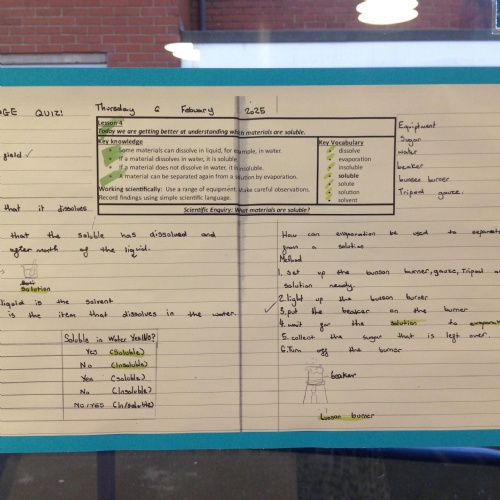 GE QUIZ!
Thursday 6 Febuary 2025
Lesson 4
Today we are getting better at understanding which materials are soluble.
Key knowledge
Some materials can dissolve in liquid, for example, in water.
If a material dissolves in water, it is soluble.
If a material does not dissolve in water, it is insoluble.
A material can be separated again from a solution by evaporation.
Working scientifically: Use a range of equipment. Make careful observations.
Record findings using simple scientific language.
Key Vocabulary
dissolve
evaporation
insoluble
soluble
solute
solution
solvent
Scientific Enquiry: What materials are soluble?
Equiptment
Sugar
water
beaker
bunsen burner
Tripod gauze.
that it dissolves
that the soluble has dissolved and
of the liquid.
Solution
liquid is the solvent
is the item that dissolves in the water.
Soluble in water Yes/No?
Yes (Soluble)
No (Insoluble)
Yes (soluble)
No (Insoluble)
No/Yes (In/soluble)
How can evaporation be used to separate
from a solution
Method
1. Set up the bunson burner, gause, Tripod a
solution ready.
2. light up the bunson burner
3. put the beaker on the burner
4. wait for the solution to evaporat
5. collect the sugar that is left over.
6. Turn off the burner
beaker
burner